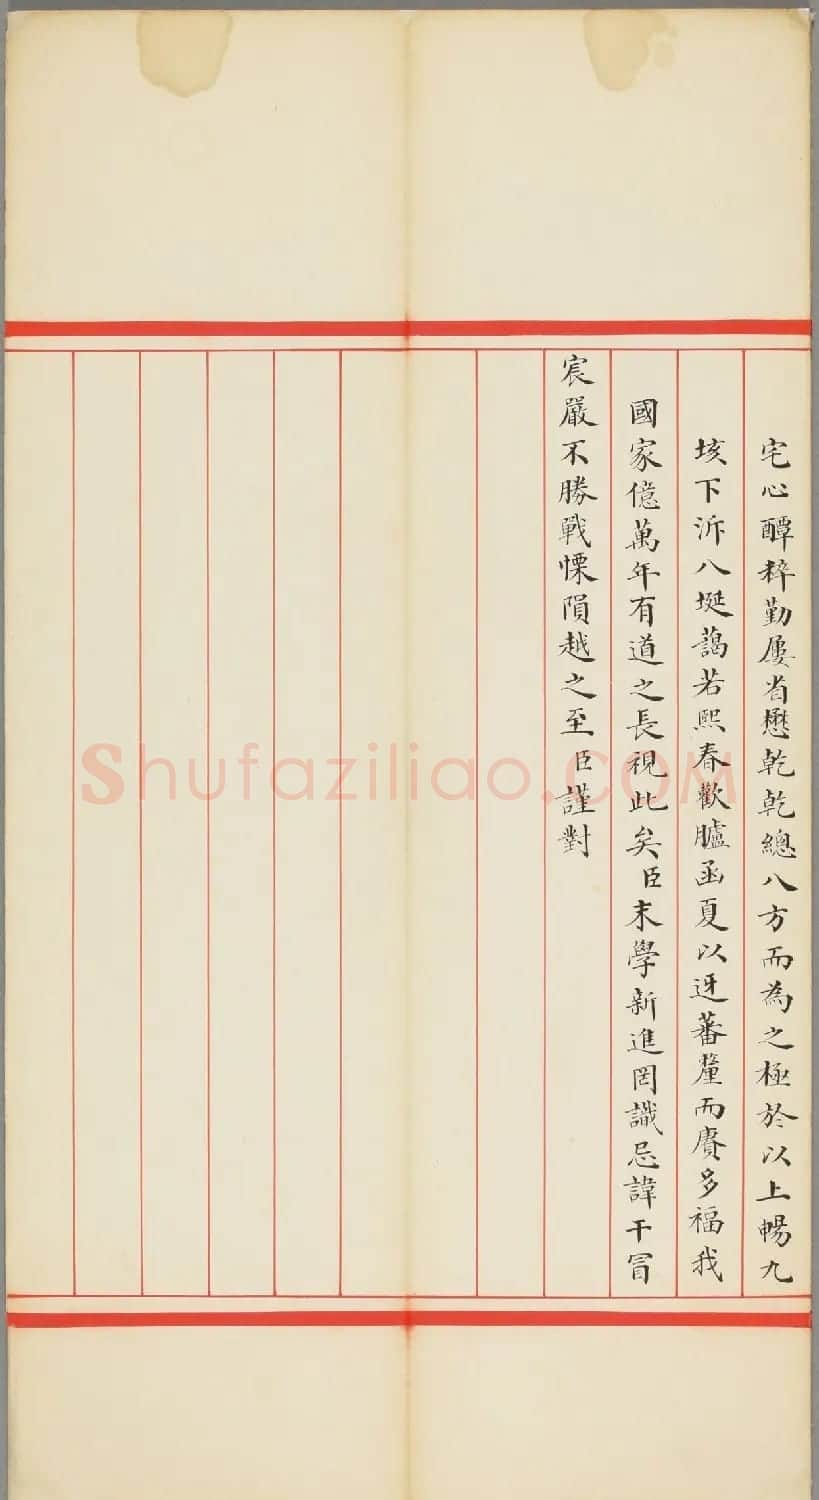 宅心醰粹勤屢省懋乾乾總八方而為之極於以上暢九
垓下泝八埏藹若熙春歡臚函夏以迓蕃釐而賡多福我
國家億萬年有道之長視此矣臣末學新進罔識忌諱干冒
宸嚴不勝戰慄隕越之至臣謹對
Shufaziliao.COM